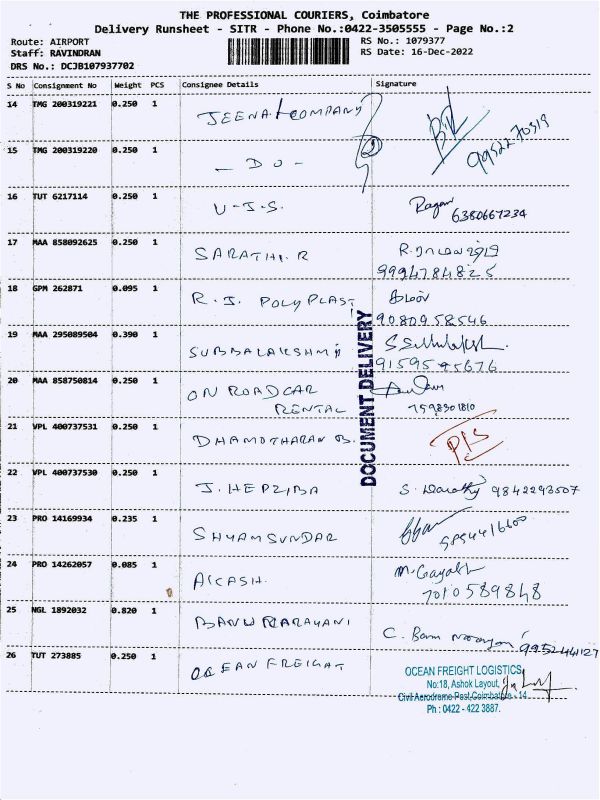 THE PROFESSIONAL COURIERS, Coimbatore
Delivery Runsheet - SITR - Phone No.:0422-3505555 - Page No.:2
Route: AIRPORT RS No.: 1079377
Staff: RAVINDRAN RS Date: 16-Dec-2022
DRS No.: DCJB107937702
S No Consignment No Weight PCS Consignee Details Signature
14 TMG 200319221 0.250 1 JEENA & COMPANY
15 TMG 200319220 0.250 1 - DO - 9952270319
16 TUT 6217114 0.250 1 U-J.S. 6380667234
17 MAA 858092625 0.250 1 SARATHI.R
9994784825
18 GPM 262871 0.095 1 R.J. POLYPLAST
9080958546
19 MAA 295089504 0.390 1 SUBBALAKSHMI
20 MAA 858750814 0.250 1 ON ROAD CAR
RENTAL
21 VPL 400737531 0.250 1 DHAMOTHARAN B.
DOCUMENT DELIVERY
22 VPL 400737530 0.250 1 J. HEPZIBA 9842293507
23 PRO 14169934 0.235 1 SHYAMSUNDAR
24 PRO 14262057 0.085 1 AKASH. M. Gayath
7010589848
25 NGL 1892032 0.820 1 BANU NARAYANI C. Banu 9952444127
26 TUT 273885 0.250 1 OCEAN FREIGHT
OCEAN FREIGHT LOGISTICS
No:18, Ashok Layout,
Civil Aerodrome Post, Coimbatore - 14
Ph : 0422 - 422 3887.